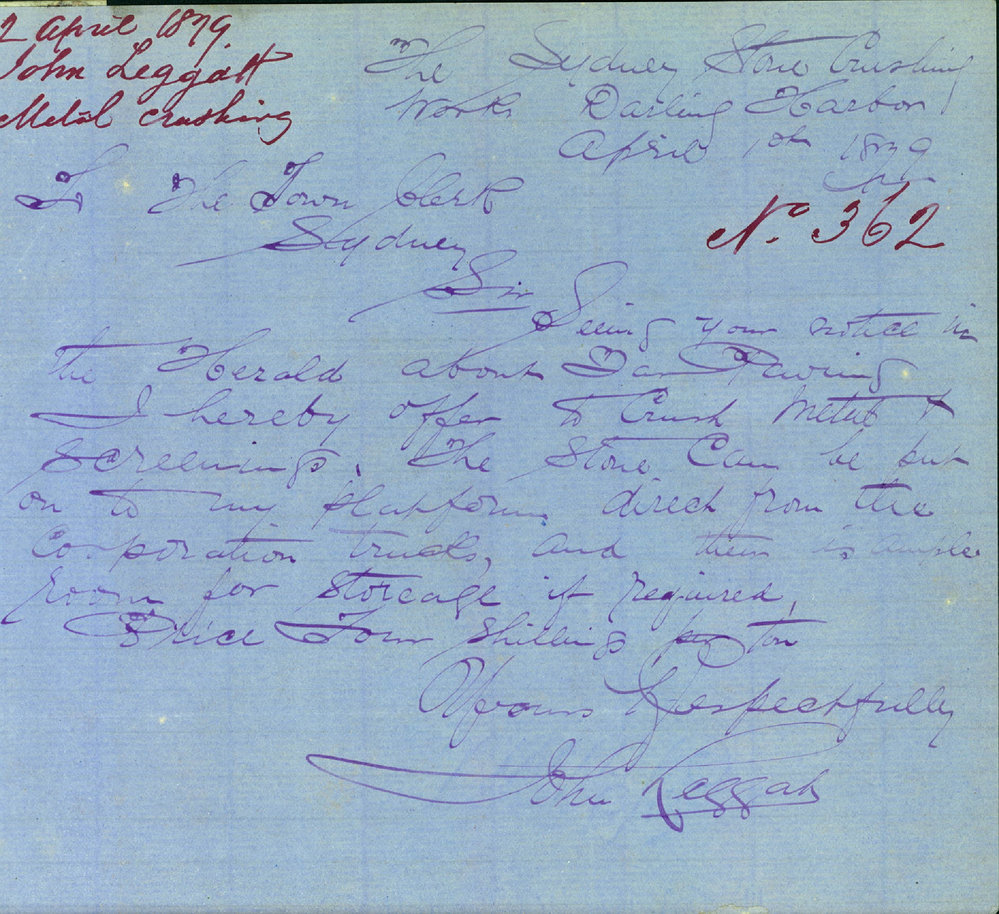 2 April 1879
John Leggatt
Metal crushing
The Sydney Stone Crushing
Works Darling Harbor
April 1st 1879
No. 362
To The Town Clerk
Sydney
Sir
Seeing your notice in
the Herald about Tar Paving
I hereby offer to Crush Metal &
screenings. The Stone Can be put
on to my platform direct from the
Corporation trucks, and there is ample
room for storeage if required,
Price Four shillings per ton
Yours Respectfully
John Leggatt